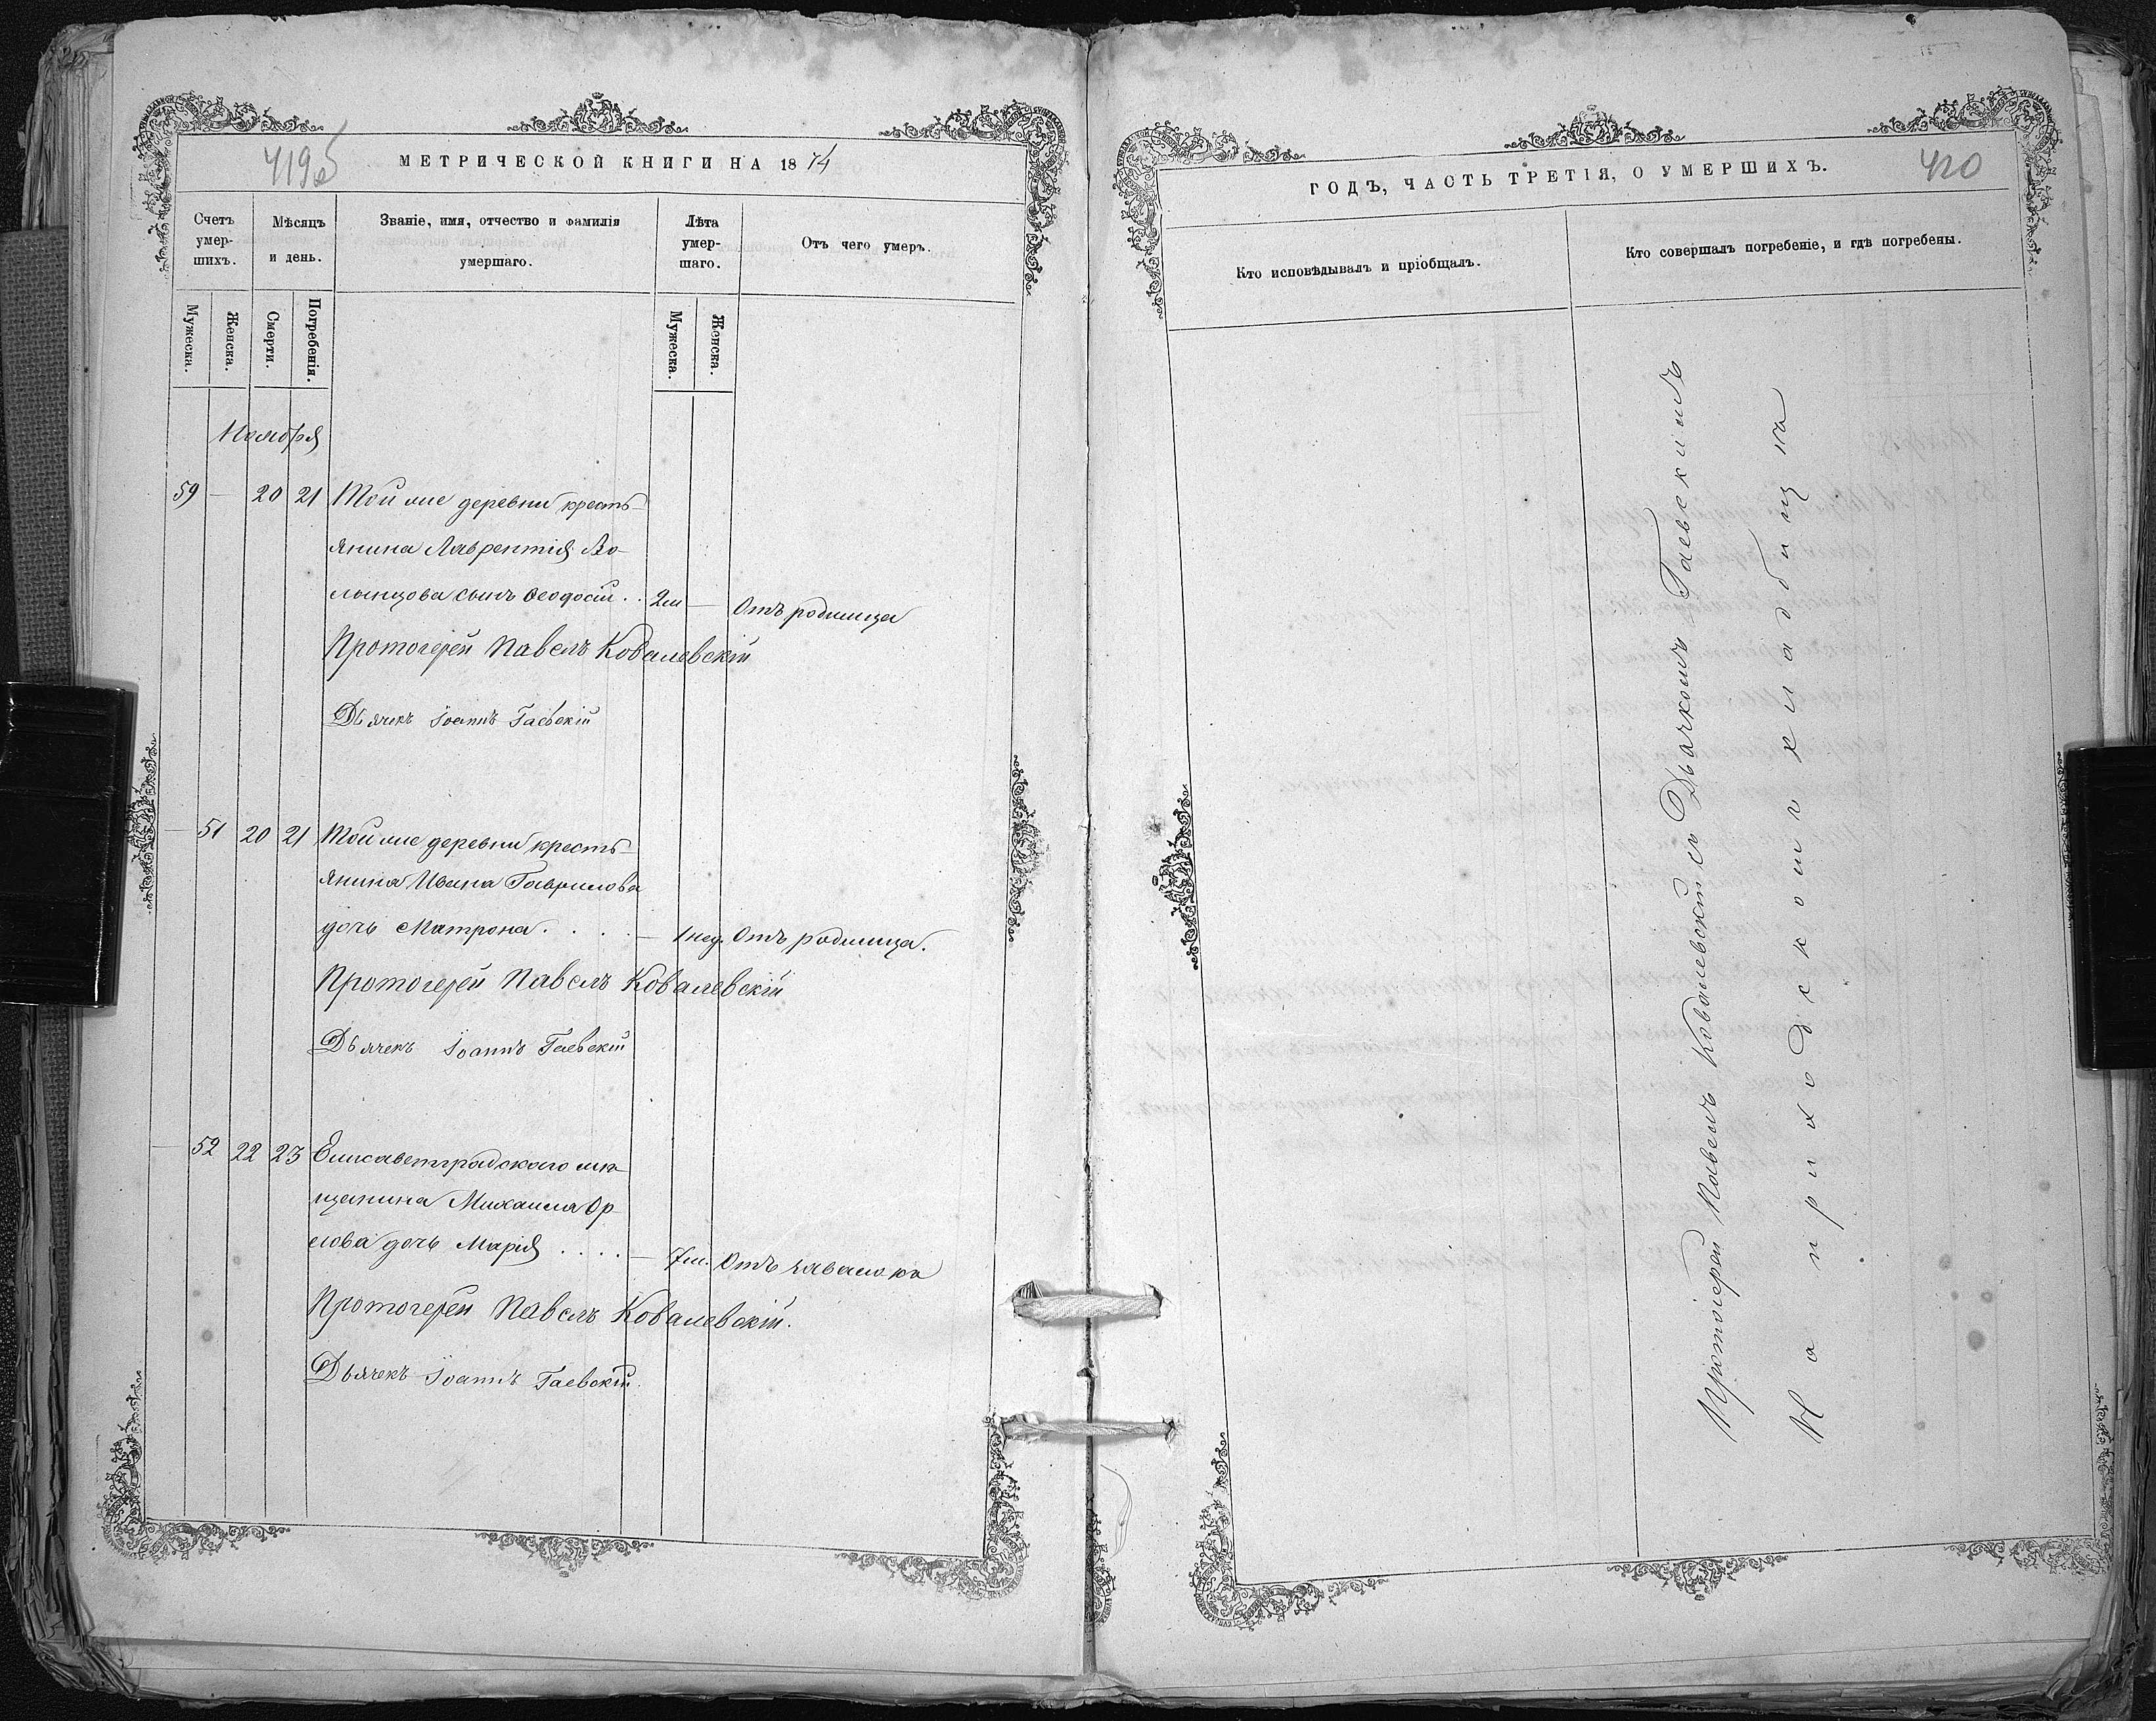 419б
МЕТРИЧЕСКОЙ КНИГИ НА 1874
Счетъ умер-шихъ.
Мѣсяцъ и день.
Званіе, имя, отчество и фамилія умершаго.
Лѣта умер-шаго.
Отъ чего умеръ.
Мужеска.
Женска.
Смерти.
Погребенія.
Мужеска.
Женска.
Ноября
59 — 20 21 Той же деревни кресть-
янина Лаврентія Во-
лынцова сынъ Ѳеодосій . . 2м — Отъ родимца
Протоіерей Павелъ Ковалевскій
Дьячекъ Іоаннъ Гаевскій
— 51 20 21 Той же деревни кресть-
янина Ивана Гаврилова
дочь Матрона . . . . — 1нед. Отъ родимца.
Протоіерей Павелъ Ковалевскій
Дьячекъ Іоаннъ Гаевскій
— 52 22 23 Елисаветградскаго мѣ-
щанина Михаила Ор-
лова дочь Марія . . . . — 7м. Отъ
Протоіерей Павелъ Ковалевскій.
Дьячекъ Іоаннъ Гаевскій.
ГОДЪ, ЧАСТЬ ТРЕТІЯ, О УМЕРШИХЪ.
420
Кто исповѣдывалъ и пріобщалъ.
Кто совершалъ погребеніе, и гдѣ погребены.
Протоіерей Павелъ Ковалевскій съ Дьячкомъ Гаевскимъ
На приходскомъ кладбищѣ